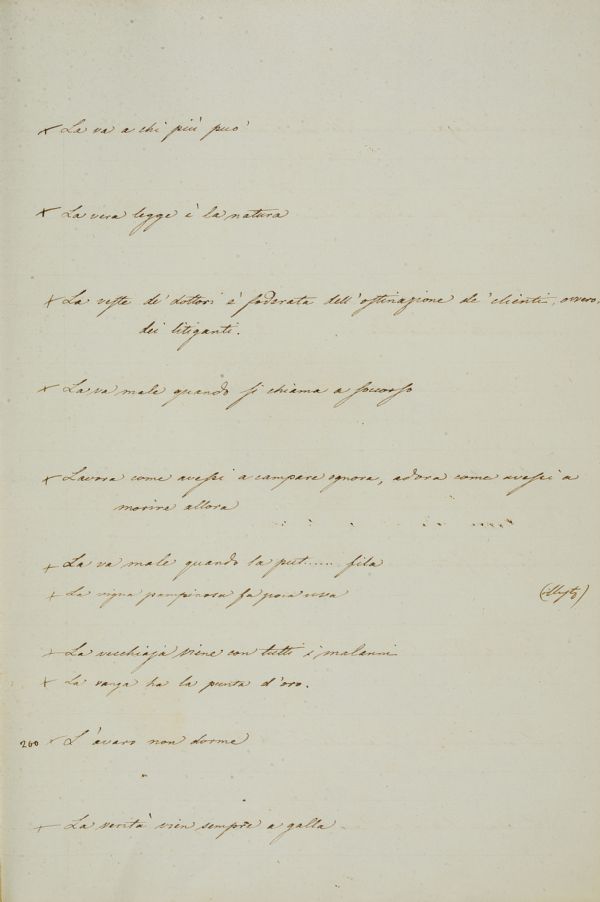 × La va a chi più può
× La vera legge è la natura
× La veste de' dottori è foderata dell'ostinazione de' clienti, ovvero,
dei litiganti.
× La va male quando si chiama a soccorso
× Lavora come avessi a campare ognora, adora come avessi a
morire allora
× La va male quando la put...... fila
× La vigna pampinosa fa poca uva
× La vecchiaja viene con tutti i malanni
× La vanga ha la punta d'oro.
260 × L'avaro non dorme
× La verità vien sempre a galla